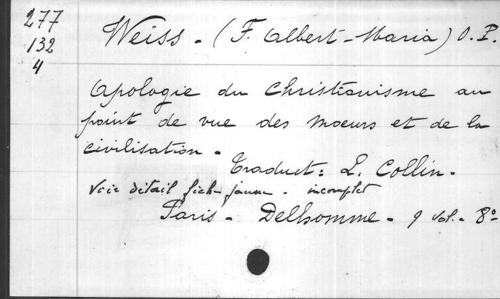 277
132
4
Weiss - (F. Albert-Maria) O.P.
Apologie du Christianisme au
point de vue des moeurs et de la
civilisation -
Traduct: L. Collin -
Voir détail fich- jaune - incomplet
Paris - Delhomme - 9 vol. - 8°